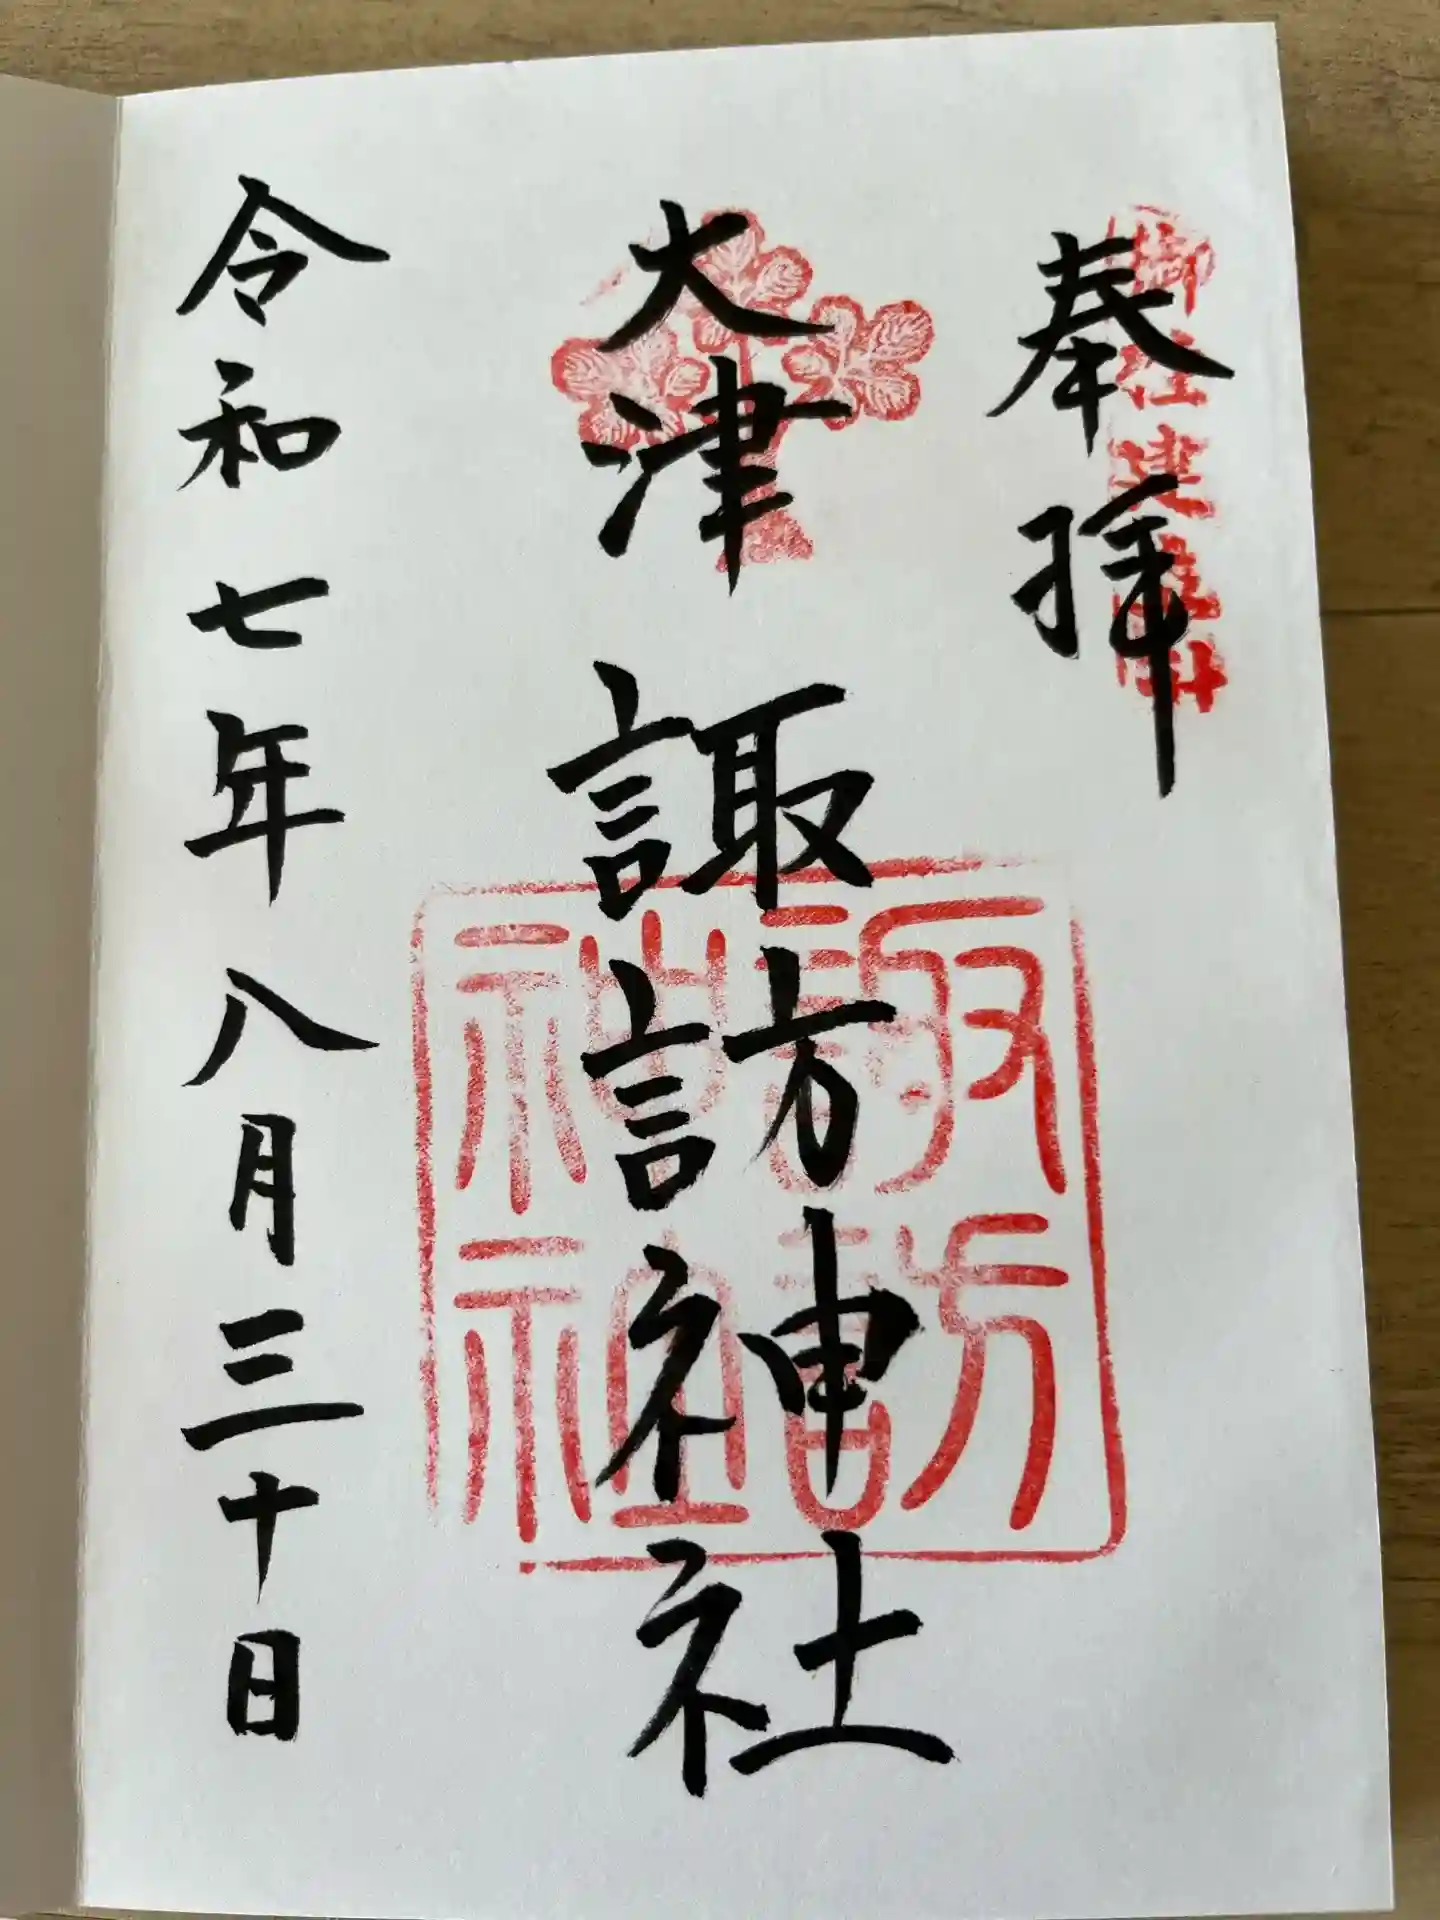 奉拝
御柱建
大津諏訪神社
諏訪
神社
令和七年八月三十日